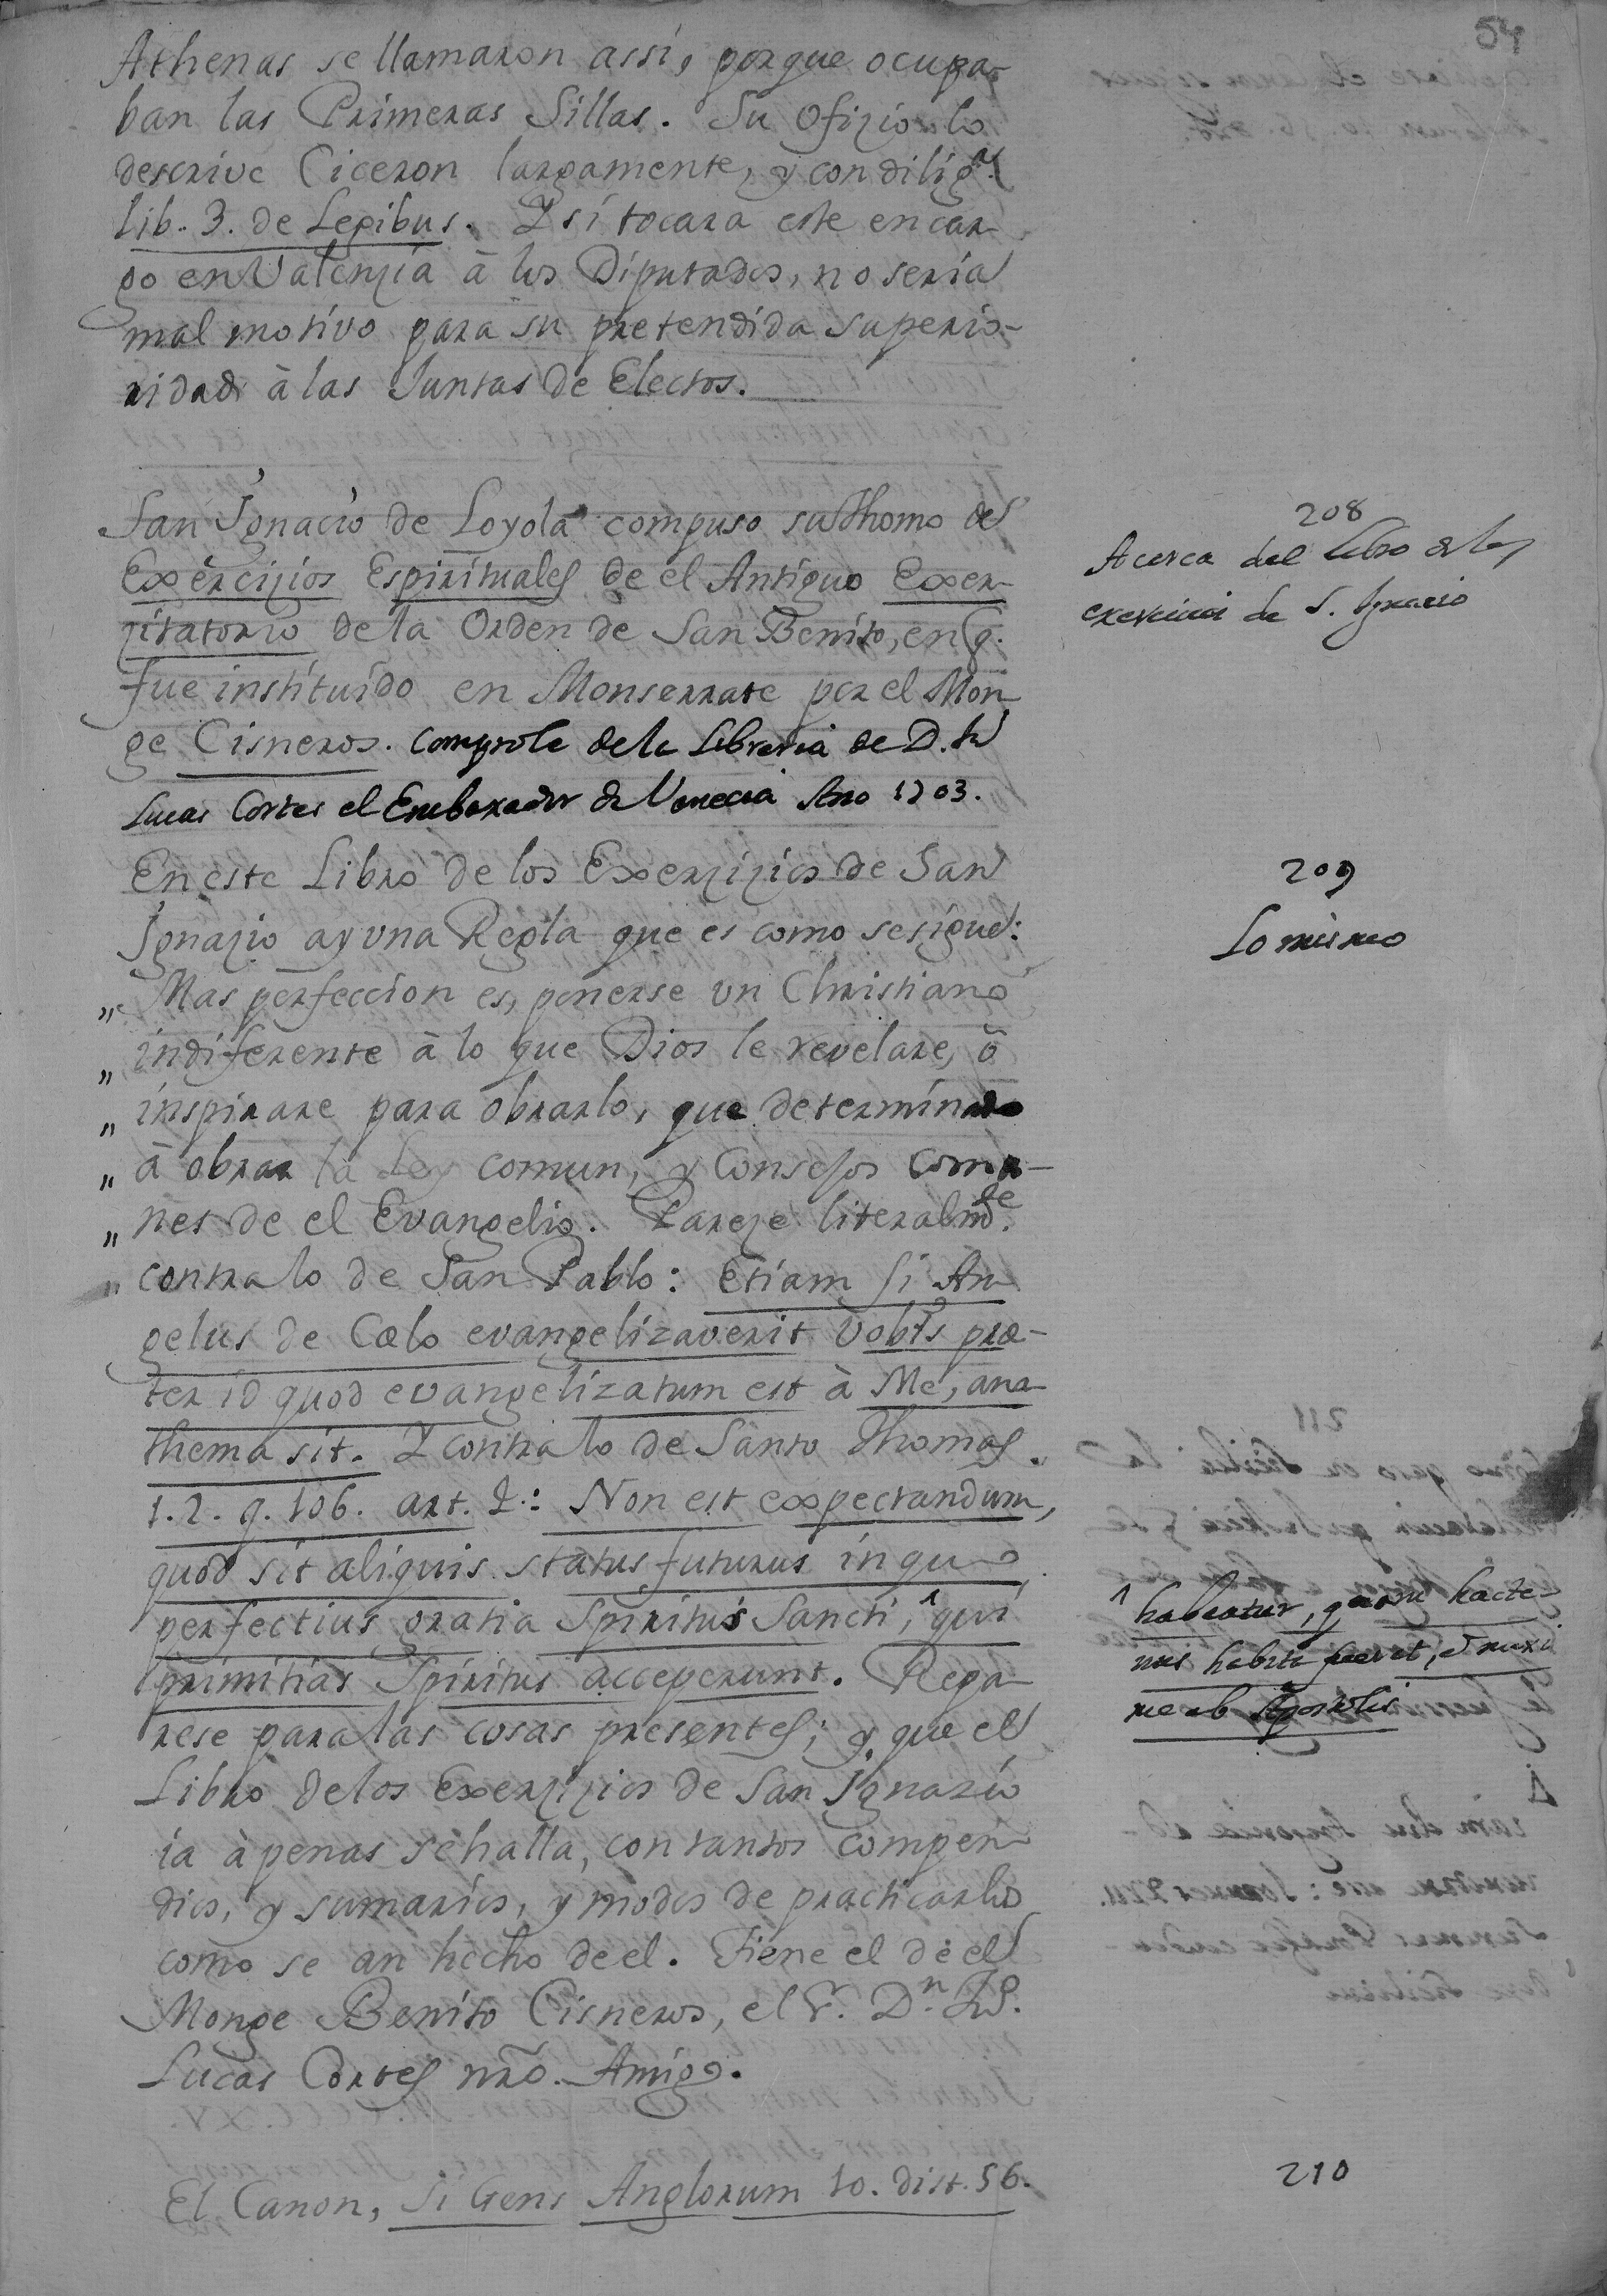 54
Athenas se llamaron assi, porque ocupa-
ban las Primeras Sillas. Su Ofizio lo
descrive Ciceron largamente, y con dilig.ª
lib. 3. de Legibus. Y si tocara este encar-
go en Valenzia à los Diputados, no seria
mal motivo para su pretendida superio-
ridad à las Juntas de Electos.
208
Acerca del Libro de los
exercicios de S. Ignacio
San Ignacio de Loyola compuso su thomo de
Exercizios Espirituales de el Antiguo Exer-
zitatorio de la Orden de San Benito, en q.
fue instituido en Monserrate por el Mon
ge Cisneros. Comprole de la Libreria de D.
Lucas Cortes el Embaxador de Venecia Año 1703.
209
Lo mismo
En este Libro de los Exerzizios de San
Ignazio ay una Regla que es como se sigue:
„ Mas perfeccion es, ponerse un Christiano
„ indiferente à lo que Dios le revelare, ò
„ inspirare para obrarlo, que determinado
„ à obrar la Ley comun, y Consejos comu-
„ nes de el Evangelio. Pareze literalm.te
„ contra lo de San Pablo: Etiam si An
gelus de Cœlo evangelizaverit vobis præ-
ter id quod evangelizatum est à Me, ana-
thema sit. Y contra lo de Santo Thomas
1.2. q. 106. art. 2.: Non est expectandum,
quod sit aliquis status futurus in quo
perfectius gratia Spiritus Sancti, ^ qui
^ habeatur, quam hacte-
nus habita fuerit, et maxi
me ab Apostolis
primitias Spiritus acceperunt. Repa-
rese para las cosas presentes; y que el
Libro de los Exerzizios de San Ignazio
ia à penas se halla, con tantos compen
dios, y sumarios, y modos de practicarlo
como se an hecho de el. Tiene el de el
Monge Benito Cisneros, el S. D.n
Lucas Cortes nrõ. Amigo.
210
El Canon, Si Gens Anglorum 10. dist. 56.